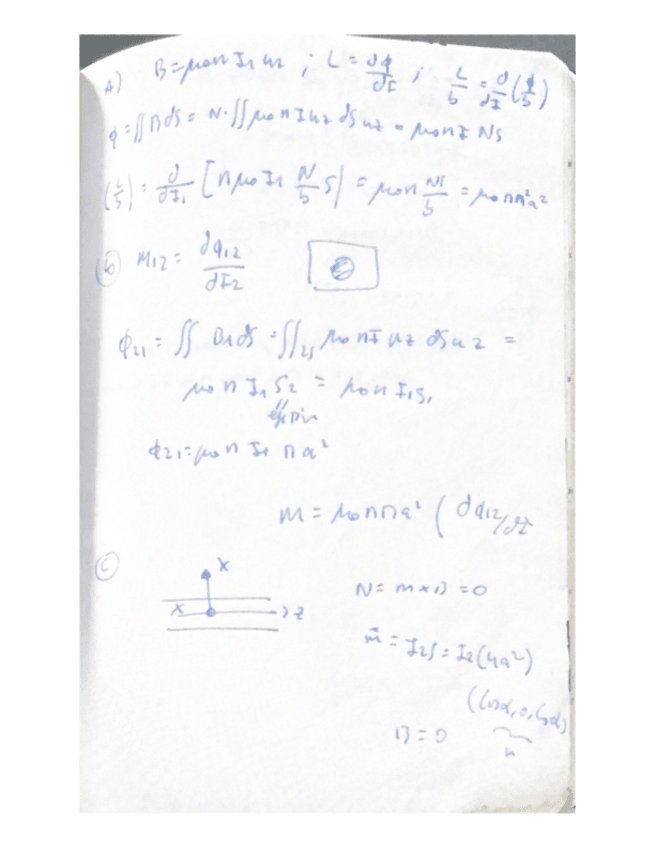 A) B = μ₀ n I₁ u_z ; L = dφ/dI ; L/b = d/dI (φ/b)
φ = ∬ B dS = N · ∬ μ₀ n I u_z dS u_z = μ₀ n I N S
(L/b) = d/dI₁ [n μ₀ I₁ N/b S] = μ₀ n NS/b = μ₀ n π n² a²
(b) M₁₂ = dφ₁₂/dI₂
φ₂₁ = ∬ B₁ dS = ∬₂S μ₀ n I u_z dS u_z =
μ₀ n I₁ S₂ = μ₀ n I₁ S₁
φ₂₁ = μ₀ n I₁ π a²
M = μ₀ n π a² ( dφ₁₂/dI
(c) x
x z
N = m × B = 0
m⃗ = I₂ S = I₂ (4a²)
(cos α, 0, cos α)
n
B = 0